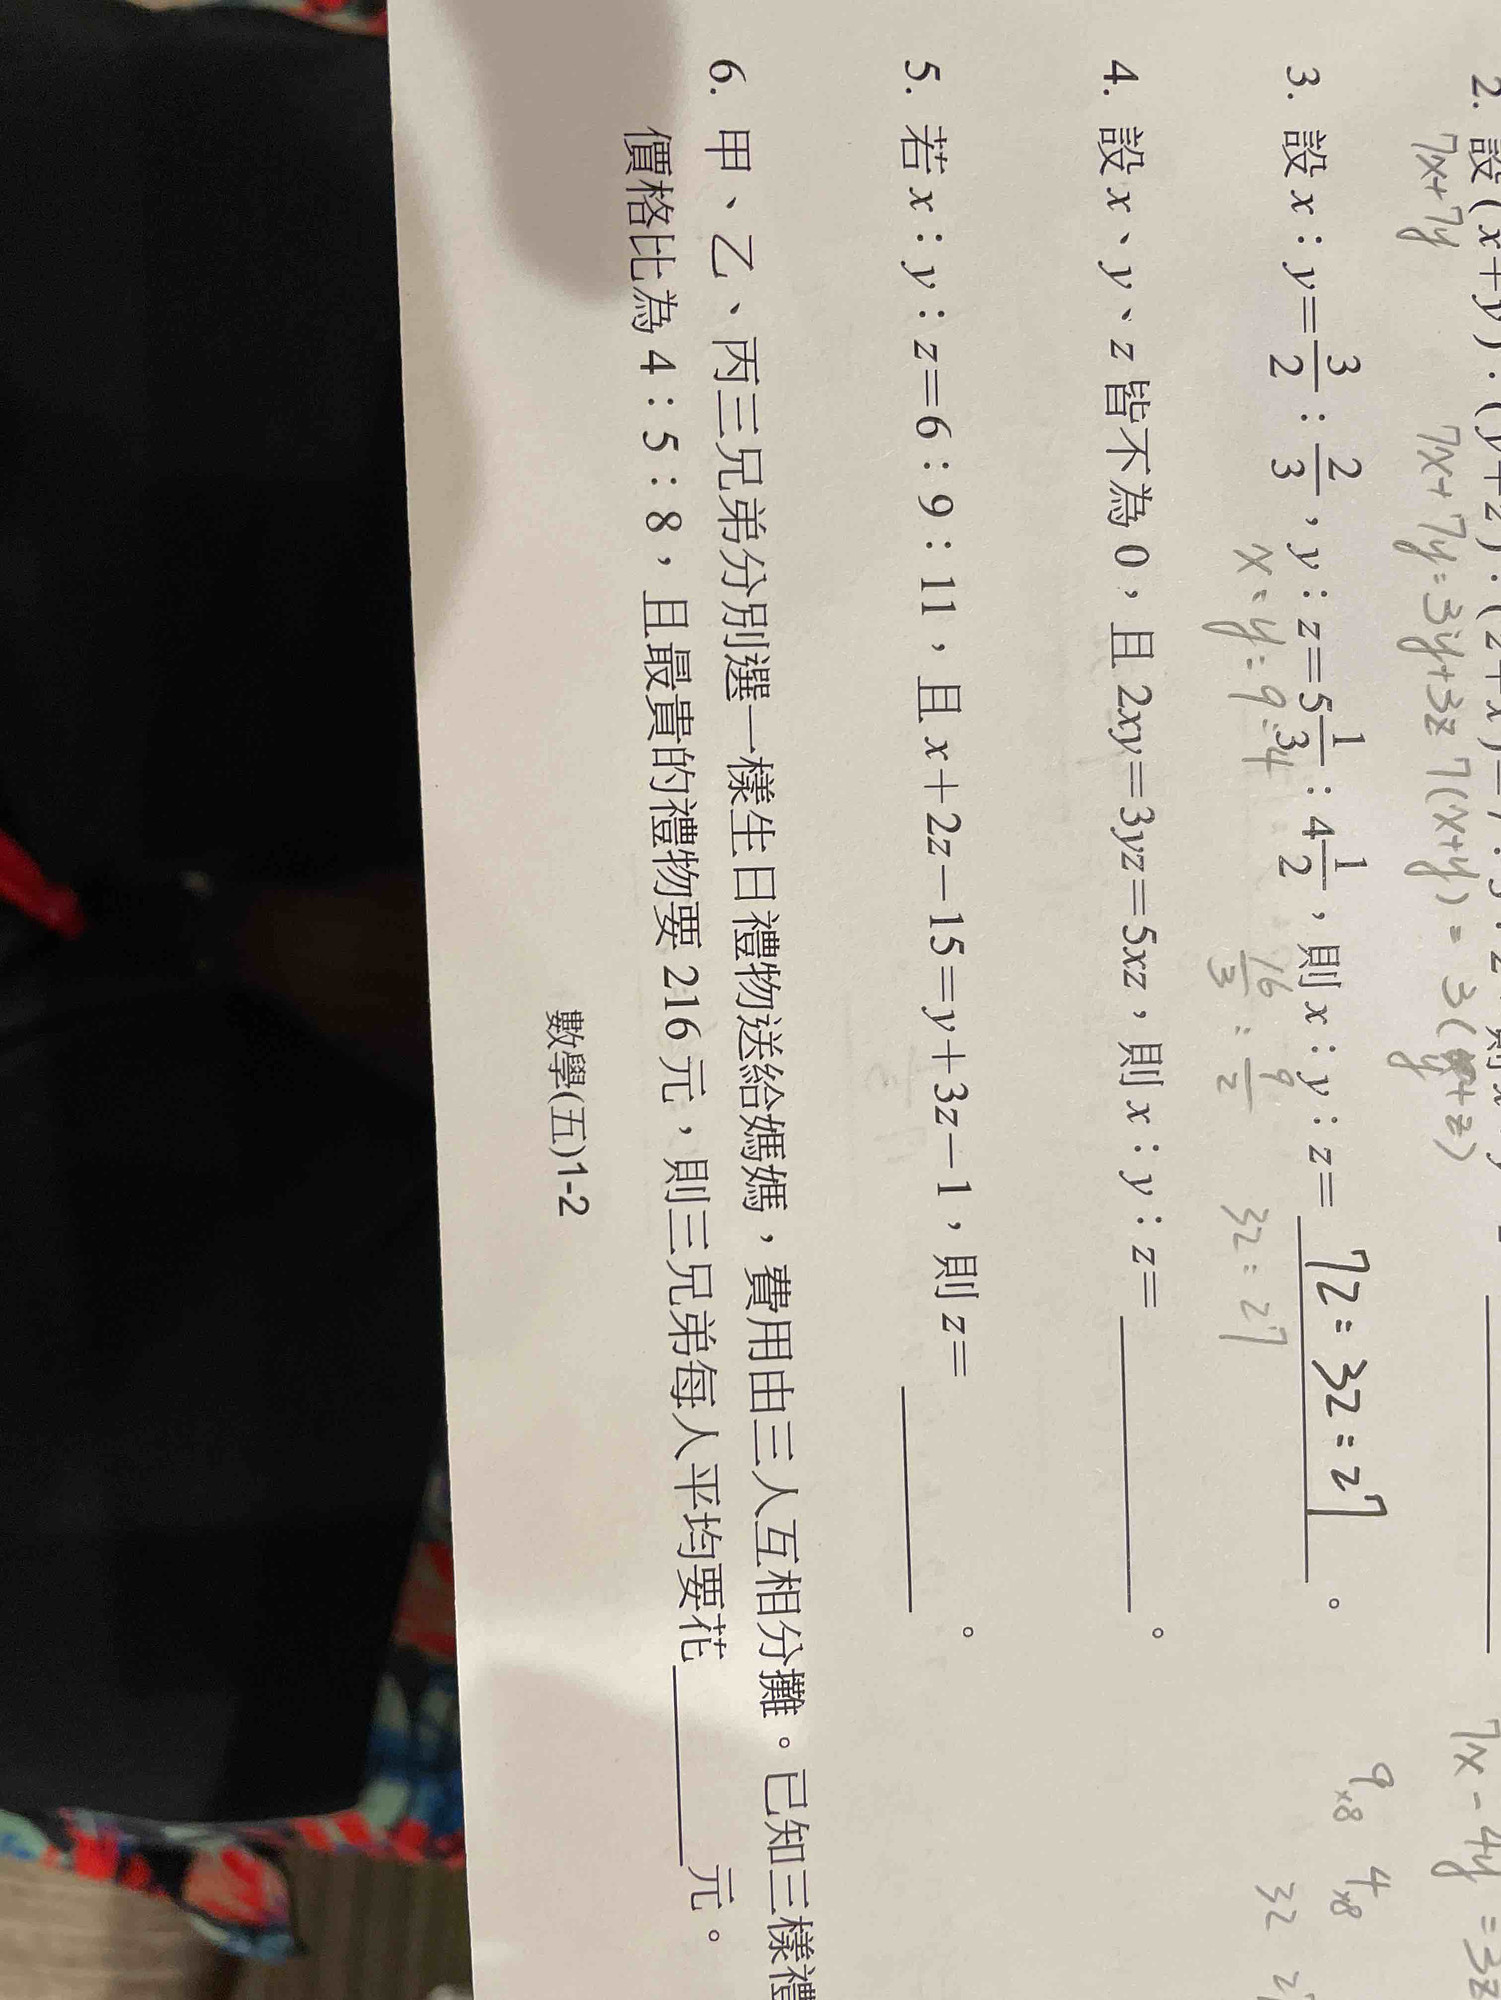 2. 設(x+y):(y+z):(z+x)=7:
7x+7y 7x+7y=3y+3z 7(x+y)=3(y+z)
7x-4y=3z
3. 設x:y=3/2:2/3,y:z=5 1/3:4 1/2,則x:y:z= 72:32:27 。
x:y=9:4 16/3:9/2 32:27
9×8 4×8
32
4. 設x、y、z皆不為0,且2xy=3yz=5xz,則x:y:z=________。
5. 若x:y:z=6:9:11,且x+2z-15=y+3z-1,則z=________。
6. 甲、乙、丙三兄弟分別選一樣生日禮物送給媽媽,費用由三人互相分攤。已知三樣禮
價格比為4:5:8,且最貴的禮物要216元,則三兄弟每人平均要花________元。
數學(五)1-2